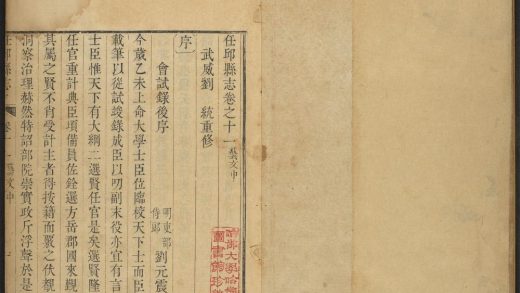 任邱縣志卷之十一 藝文中
武威劉 統重修
序
會試錄後序 明吏部侍郎 劉元震
今歲乙未上命大學士臣位臨校天下士而臣
載筆以從試竣錄成臣以叨副末役亦宜有言
士臣惟天下有大綱二選賢任官是矣選賢隆
任官重計典臣頃備員佐銓選方岳郡國來覲
其屬之賢不肖受計主者得按籍而覈之伏覩
洞察治理赫然特詔部院崇實政斥浮聲於是
任邱縣志 卷十一 藝文中